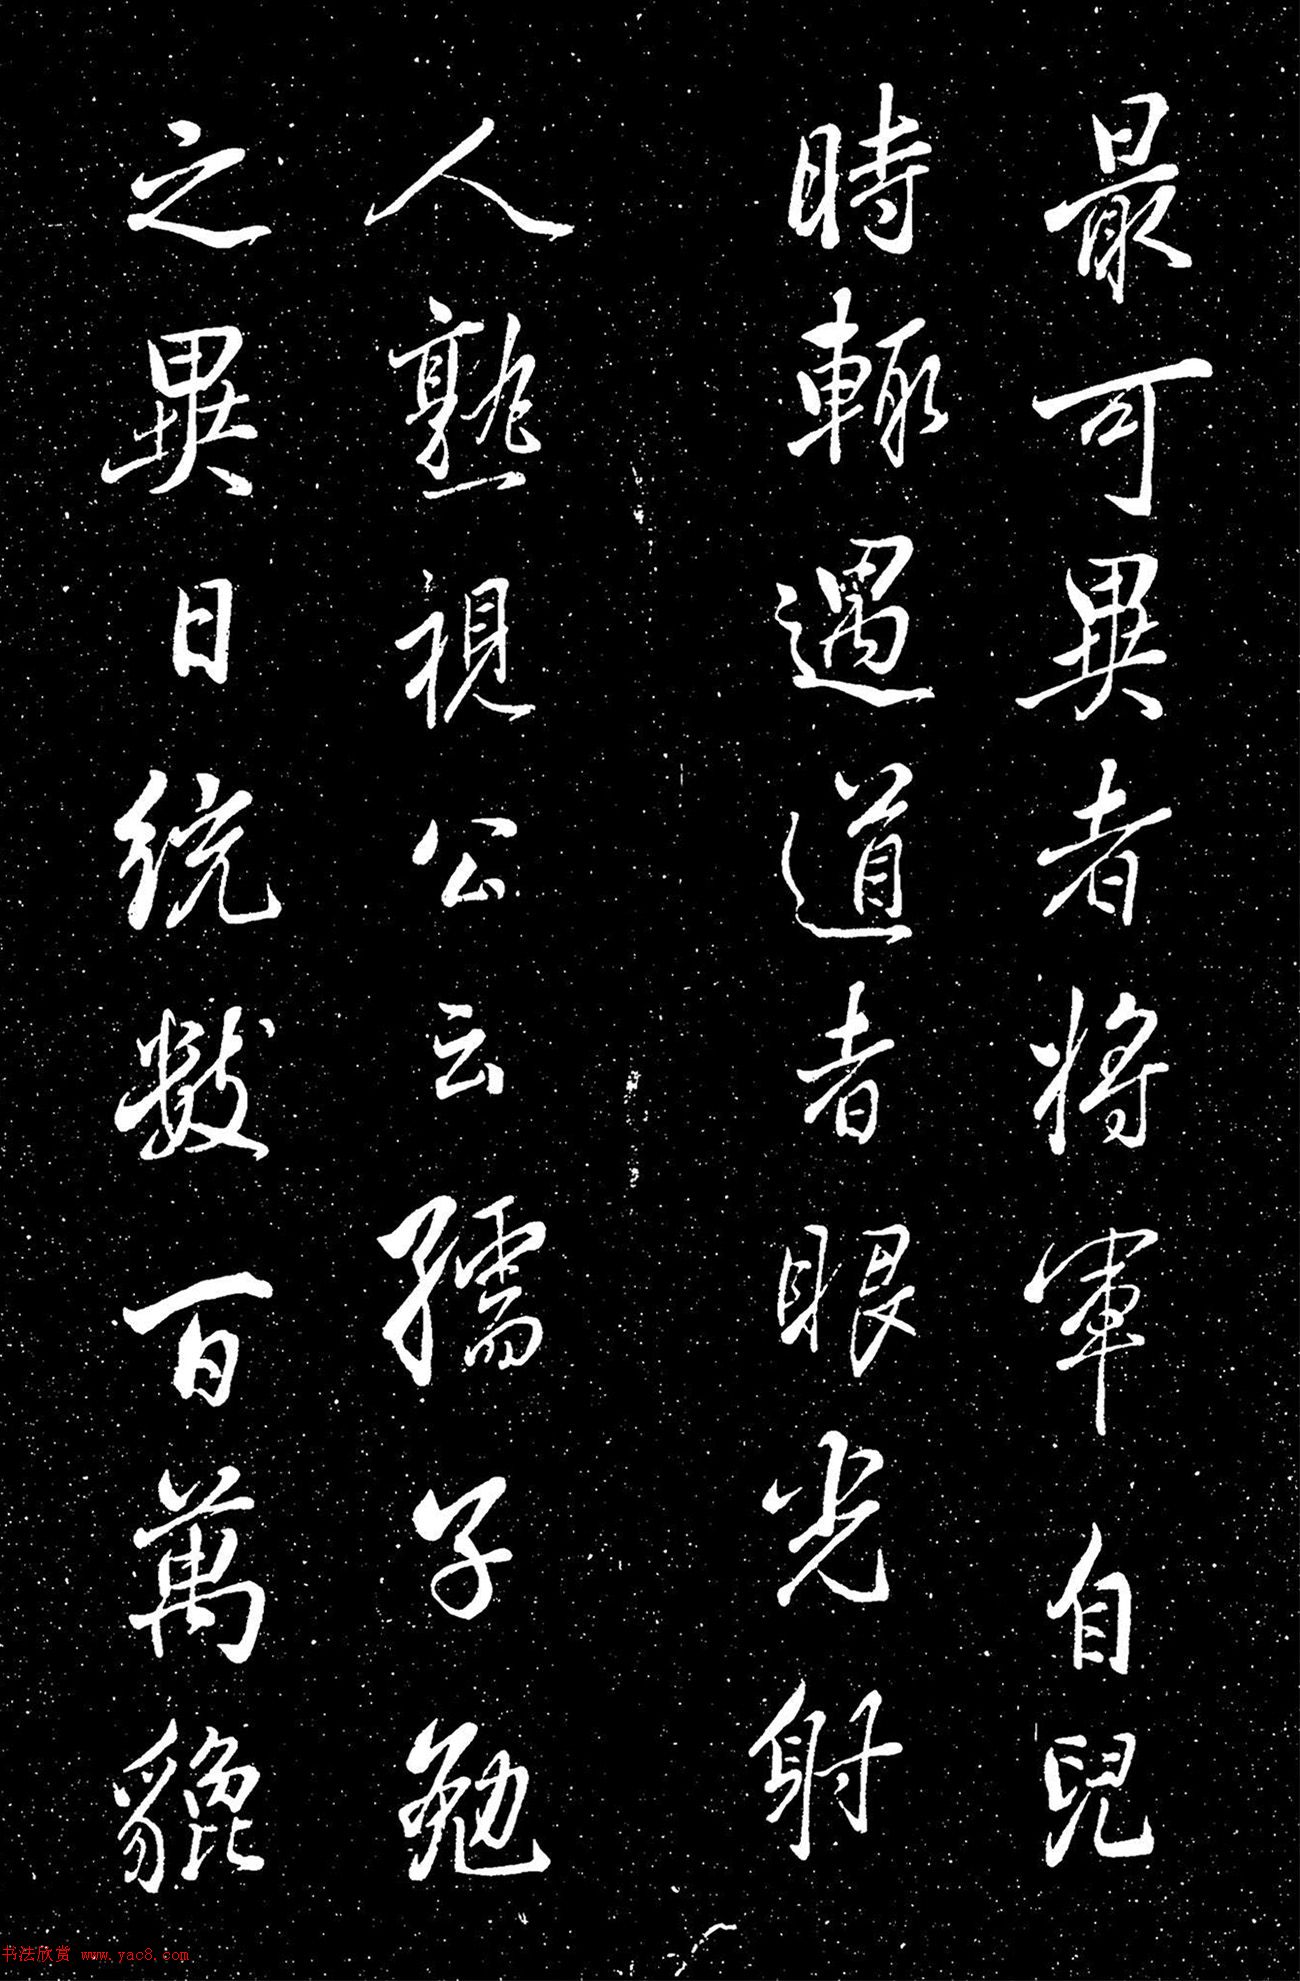 最可異者將軍自兒
時輒遇道者眼光射
人熟視公云孺子勉
之異日統數百萬貔
书法欣赏 www.yac8.com